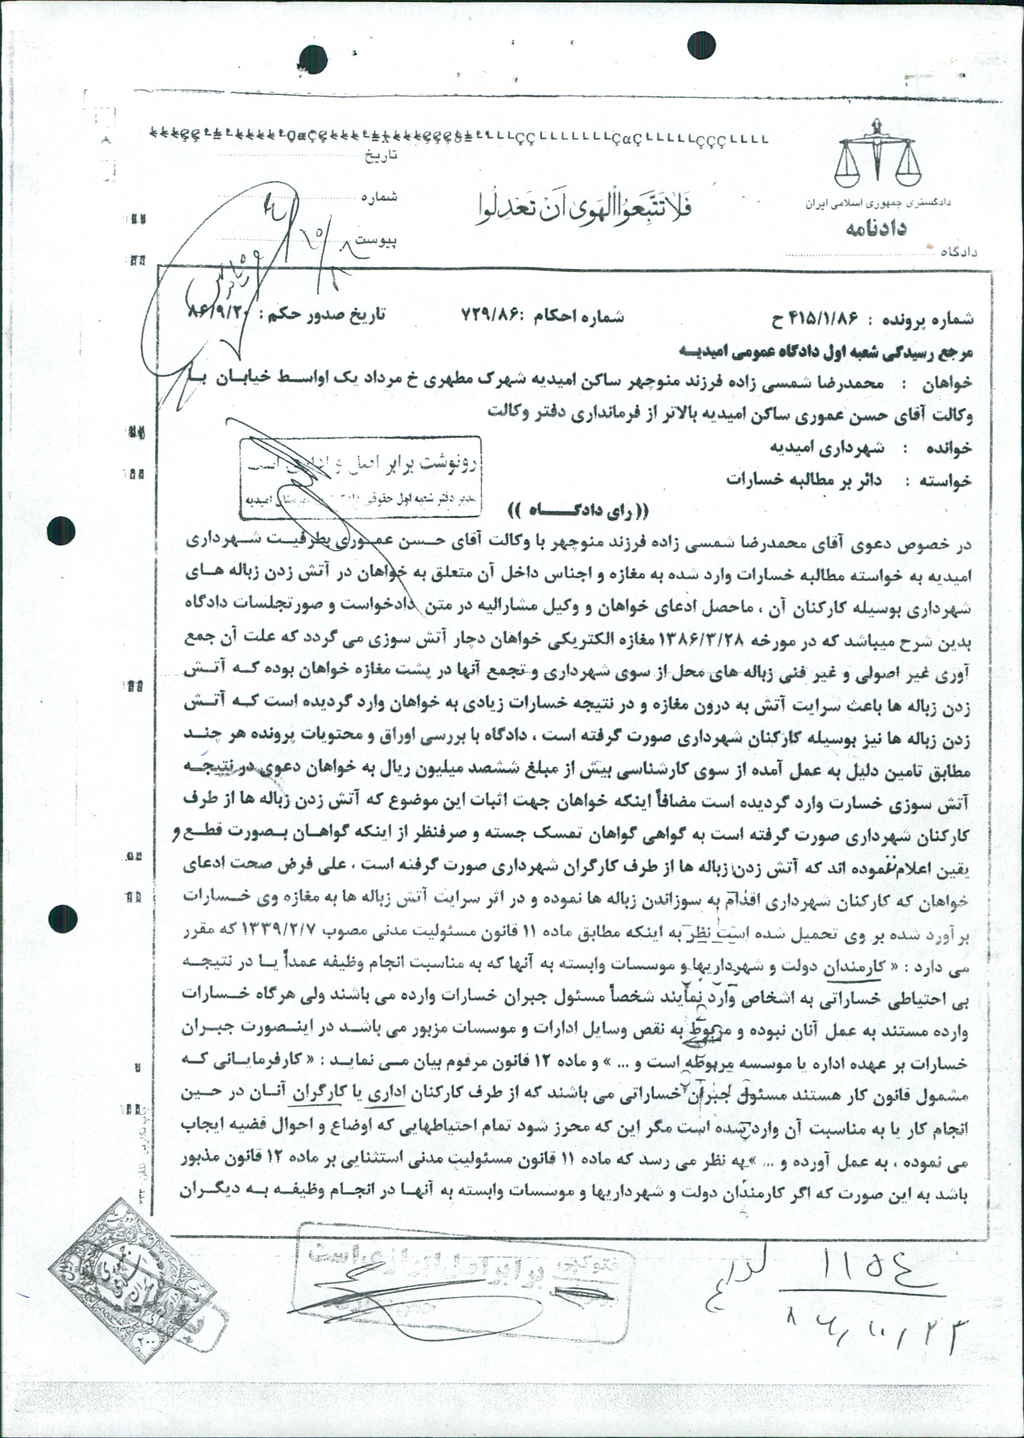 تاریخ
شماره
پیوست
فَلا تَتَّبِعُوا الْهَوىٰ اَنْ تَعْدِلُوا
دادگستری جمهوری اسلامی ایران
دادنامه
دادگاه
شماره پرونده : ۴۱۵/۱/۸۶ ح شماره احکام :۷۲۹/۸۶ تاریخ صدور حکم : ۸۶/۹/۲۰
مرجع رسیدگی شعبه اول دادگاه عمومی امیدیه
خواهان : محمدرضا شمسی زاده فرزند منوچهر ساکن امیدیه شهرک مطهری خ مرداد یک اواسط خیابان با
وکالت آقای حسن عموری ساکن امیدیه بالاتر از فرمانداری دفتر وکالت
خوانده : شهرداری امیدیه
خواسته : دائر بر مطالبه خسارات
رونوشت برابر اصل و اداری است
مدیر دفتر شعبه اول حقوقی امیدیه
(( رای دادگاه ))
در خصوص دعوی آقای محمدرضا شمسی زاده فرزند منوچهر با وکالت آقای حسن عموری بطرفیت شهرداری
امیدیه به خواسته مطالبه خسارات وارد شده به مغازه و اجناس داخل آن متعلق به خواهان در آتش زدن زباله های
شهرداری بوسیله کارکنان آن ، ماحصل ادعای خواهان و وکیل مشارالیه در متن دادخواست و صورتجلسات دادگاه
بدین شرح میباشد که در مورخه ۱۳۸۶/۳/۲۸ مغازه الکتریکی خواهان دچار آتش سوزی می گردد که علت آن جمع
آوری غیر اصولی و غیر فنی زباله های محل از سوی شهرداری و تجمع آنها در پشت مغازه خواهان بوده که آتش
زدن زباله ها باعث سرایت آتش به درون مغازه و در نتیجه خسارات زیادی به خواهان وارد گردیده است که آتش
زدن زباله ها نیز بوسیله کارکنان شهرداری صورت گرفته است ، دادگاه با بررسی اوراق و محتویات پرونده هر چند
مطابق تامین دلیل به عمل آمده از سوی کارشناسی بیش از مبلغ ششصد میلیون ریال به خواهان دعوی در نتیجه
آتش سوزی خسارت وارد گردیده است مضافاً اینکه خواهان جهت اثبات این موضوع که آتش زدن زباله ها از طرف
کارکنان شهرداری صورت گرفته است به گواهی گواهان تمسک جسته و صرفنظر از اینکه گواهان بصورت قطع و
یقین اعلام ننموده اند که آتش زدن زباله ها از طرف کارگران شهرداری صورت گرفته است ، علی فرض صحت ادعای
خواهان که کارکنان شهرداری اقدام به سوزاندن زباله ها نموده و در اثر سرایت آتش زباله ها به مغازه وی خسارات
برآورد شده بر وی تحمیل شده است نظر به اینکه مطابق ماده ۱۱ قانون مسئولیت مدنی مصوب ۱۳۳۹/۲/۷ که مقرر
می دارد : « کارمندان دولت و شهرداریها و موسسات وابسته به آنها که به مناسبت انجام وظیفه عمداً یا در نتیجه
بی احتیاطی خساراتی به اشخاص وارد نمایند شخصاً مسئول جبران خسارات وارده می باشند ولی هرگاه خسارات
وارده مستند به عمل آنان نبوده و مربوط به نقص وسایل ادارات و موسسات مزبور می باشد در اینصورت جبران
خسارات بر عهده اداره یا موسسه مربوطه است و ... » و ماده ۱۲ قانون مرقوم بیان می نماید : « کارفرمایانی که
مشمول قانون کار هستند مسئول جبران خساراتی می باشند که از طرف کارکنان اداری یا کارگران آنان در حین
انجام کار یا به مناسبت آن وارد شده است مگر این که محرز شود تمام احتیاطهایی که اوضاع و احوال قضیه ایجاب
می نموده ، به عمل آورده و ... » به نظر می رسد که ماده ۱۱ قانون مسئولیت مدنی استثنایی بر ماده ۱۲ قانون مذبور
باشد به این صورت که اگر کارمندان دولت و شهرداریها و موسسات وابسته به آنها در انجام وظیفه به دیگران
فتوکپی برابر اصل است
۱۱۵۴
۸۶/۱۰/۲۳
۲۰۰